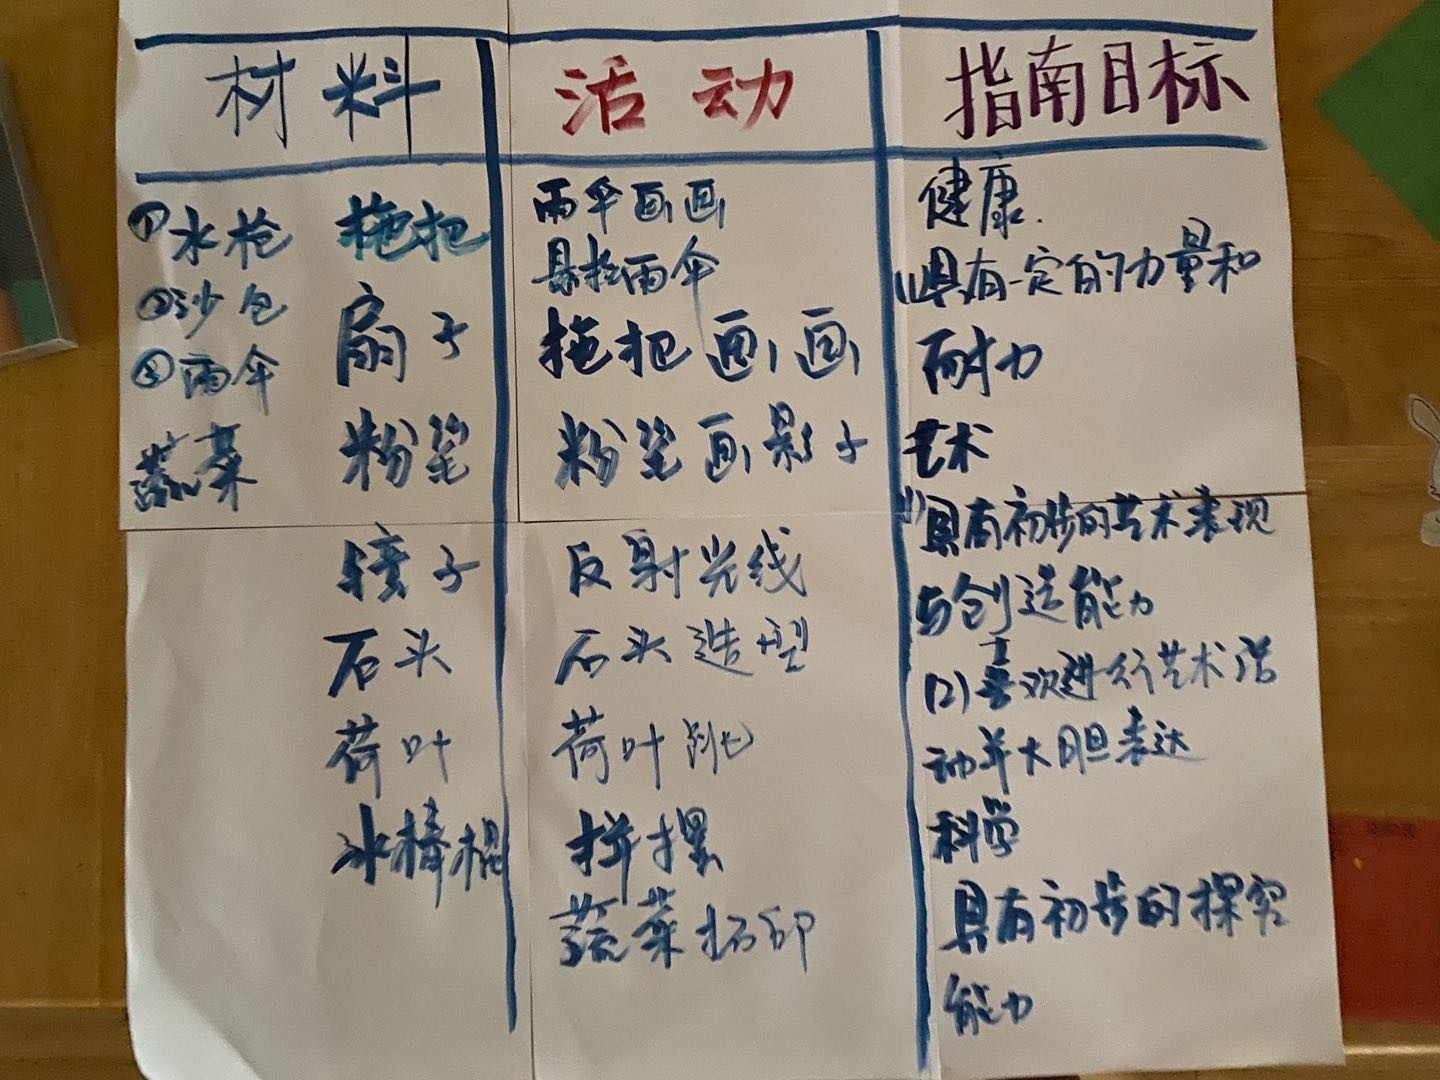 材料 活动 指南目标
①水枪 拖把
②沙包 扇子
③雨伞
蔬菜 粉笔
镜子
石头
荷叶
冰棒棍
雨伞画画
悬挂雨伞
拖把画画
粉笔画影子
反射光线
石头造型
荷叶跳
拼摆
蔬菜拓印
健康.
(1)具有一定的力量和
耐力
艺术
(1)具有初步的艺术表现
与创造能力
(2)喜欢进行艺术活
动并大胆表达
科学
具有初步的探究
能力